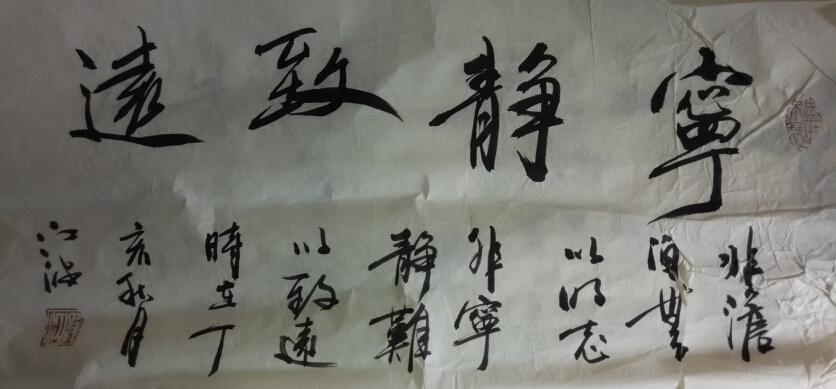 寧静致遠
非澹
泊無
以明志
非寧
静難
以致遠
時在丁
亥秋月
江波